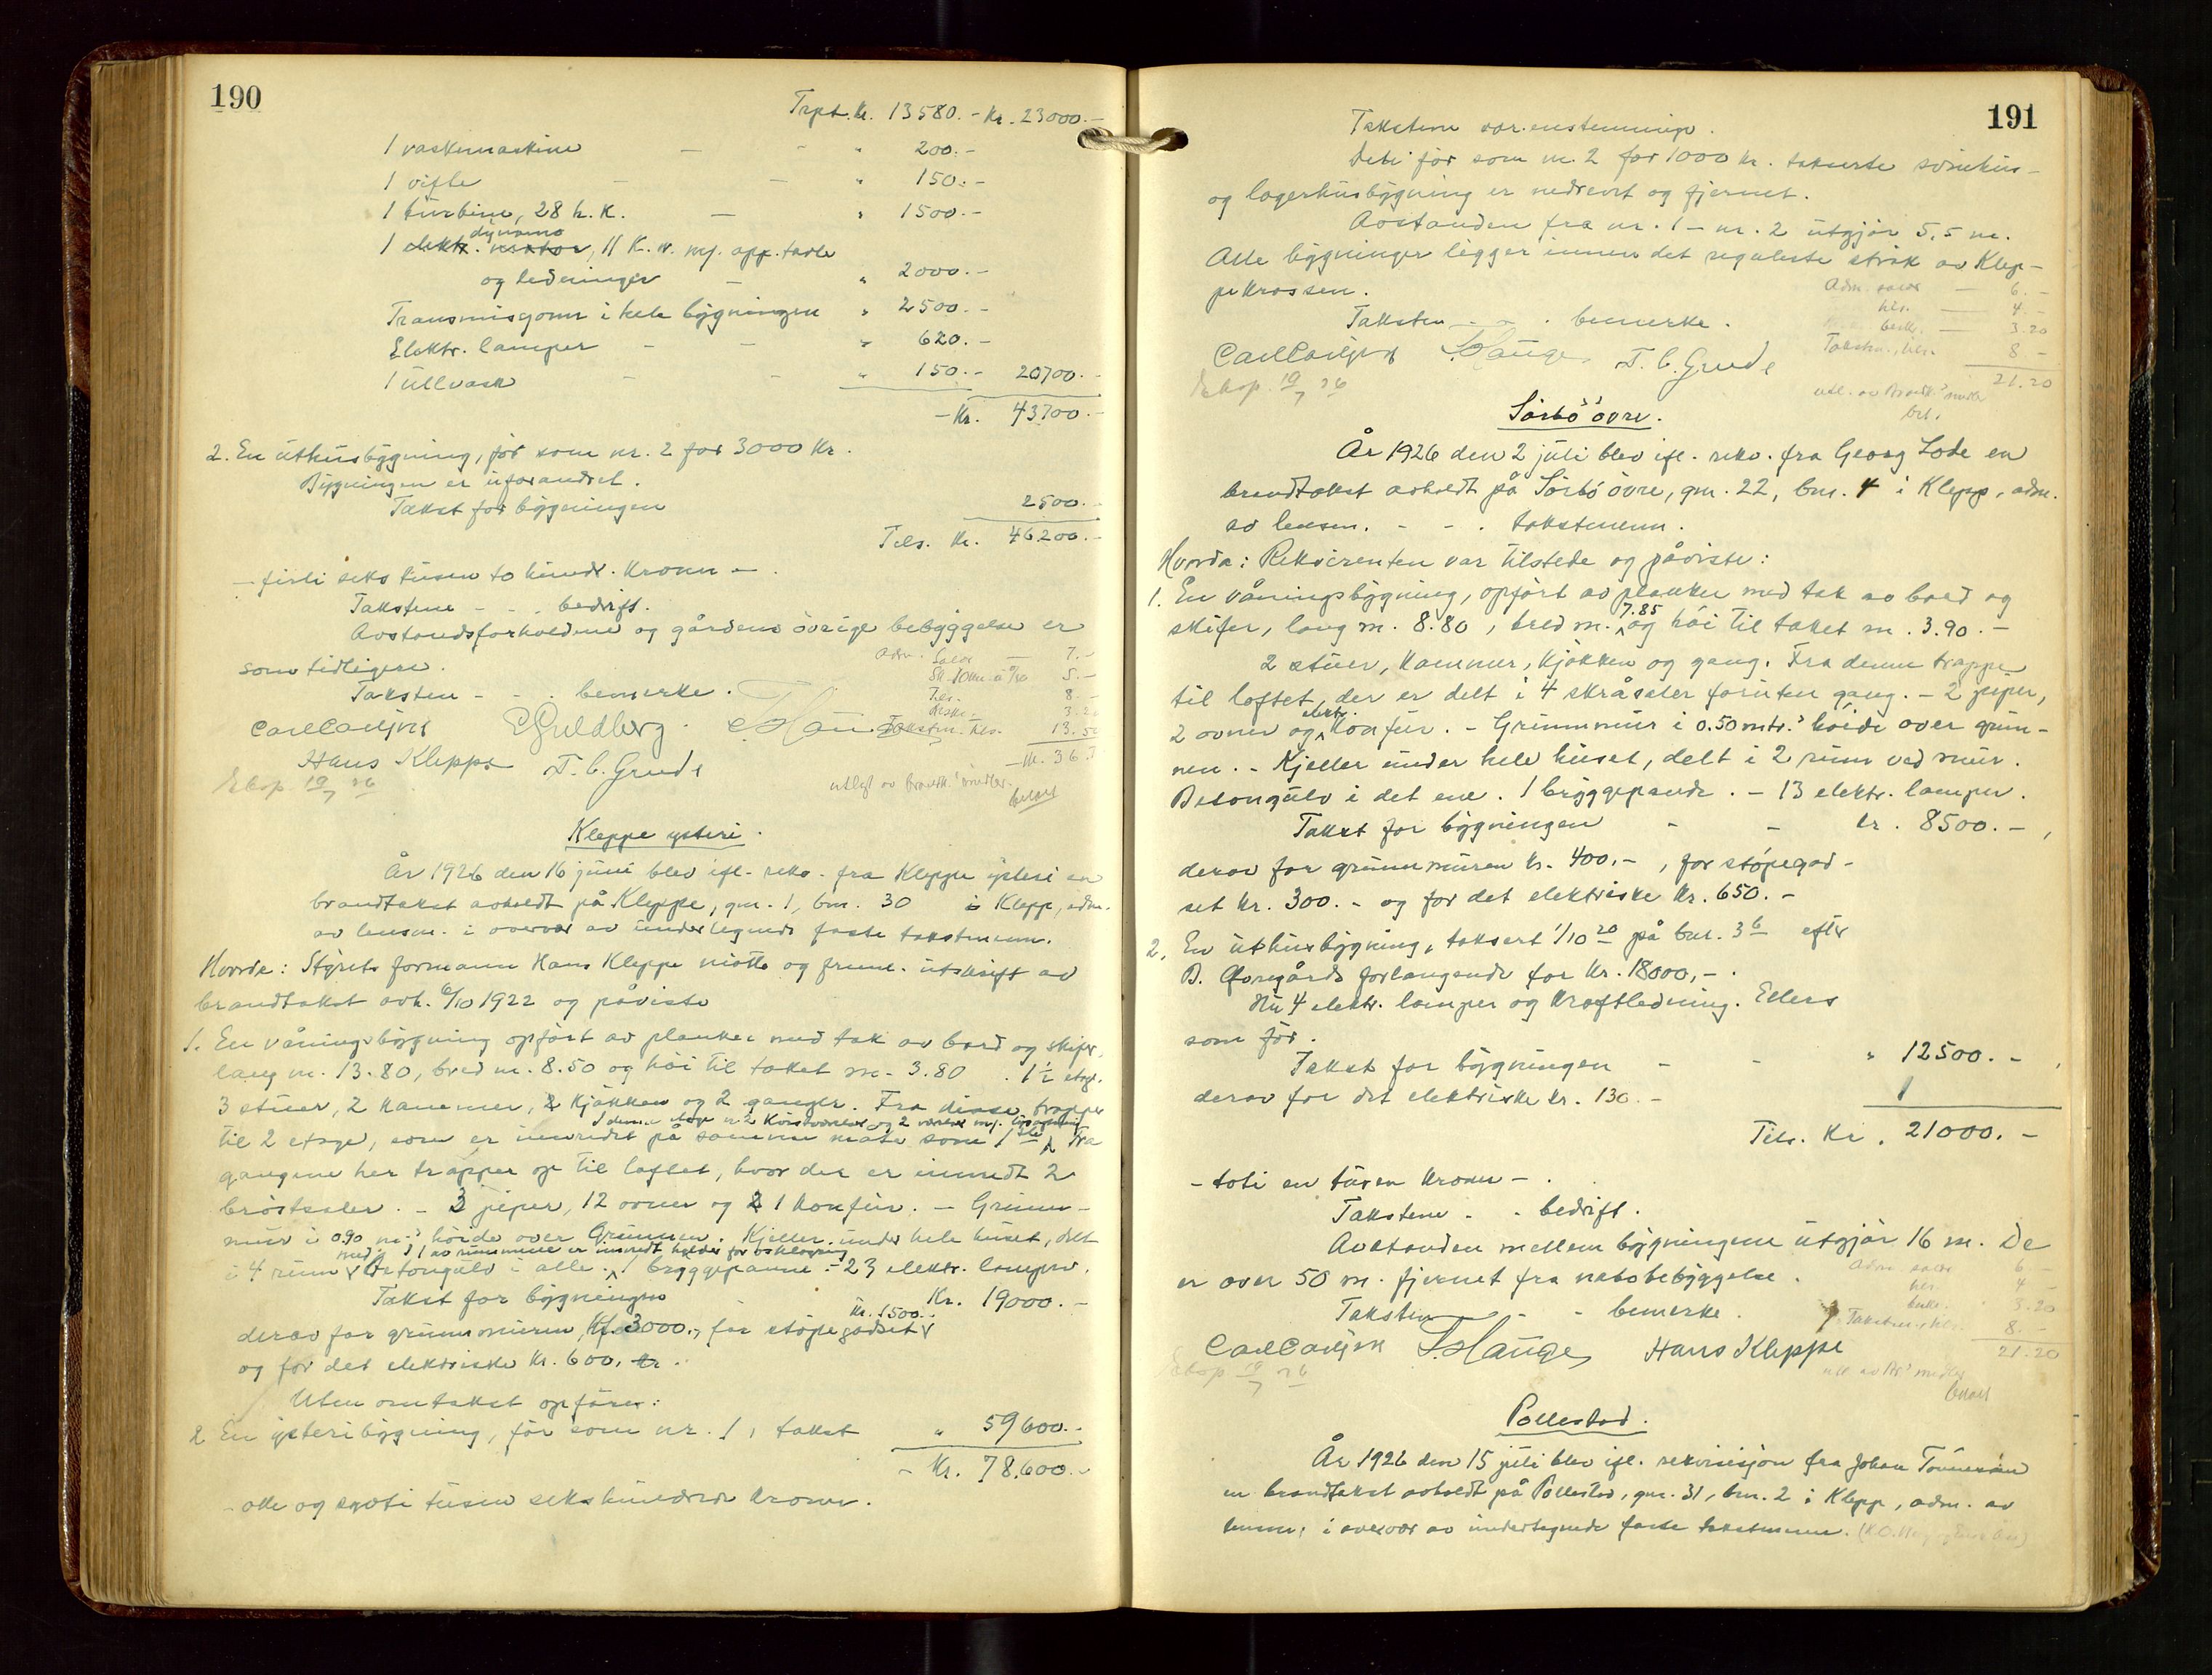 190
Trpt. Kr. 13580.- Kr. 23000.-
1 vaskemaskine - - " 200.-
1 vifte - - " 150.-
1 turbin, 28 h.K. - " 1500.-
dynamo
1 elektr. motor, 11 K.w. m/. app.tavle
og ledninger - " 2000.-
Transmisjoner i hele bygningen " 2500.-
Elektr. lamper - - " 620.-
1 ullvask - - " 150.- 20700.-
- Kr. 43700.-
2. En uthusbygning, før som nr. 2 for 3000 Kr.
Bygningen er uforandret.
Takst for bygningen 2500.-
Tils. Kr. 46200.-
- firti seks tusen to hundr. Kroner -.
Takstene - - . bedrift.
Avstandsforholdene og gårdens øvrige bebyggelse er
som tidligere.
Taksten - - . bemerke.
Adm. Salær - 7.-
5.-
Tils. 8.-
Takstm. tils. 13.50
Carl Carlsen E Guldberg. Hauge
Hans Kleppe T. C. Grude
Ekop. 19/7 26
utlagt av brandk.' midler.
betalt
Kleppe ysteri.
År 1926 den 16 juni blev ifl. rekv. fra Kleppe ysteri en
brandtakst avholdt på Kleppe, gnr. 1, bnr. 30 i Klepp, adm.
av lensm. i overvær av undertegnede faste takstmenn.
Hvorda: Styrets formann Hans Kleppe møtte og freml. utskrift av
brandtakst avh. 6/10 1922 og påviste
1. En våningsbygning opført av planker med tak av bord og skifer,
lang m. 13.80, bred m. 8.50 og høi til taket m. 3.80 . 1 1/2 etage.
3 stuer, 2 kammer, 2 kjøkken og 2 ganger. Fra disse trapper
I denne etage er 2 og 2 værelser m/.
til 2 etage, som er innredet på samme måte som 1ste. Fra
gangene her trapper op til loftet, hvor der er innredt 2
brøstsaler. - 3 piper, 12 ovner og 1 komfur. - Grunn-
mur i 0.90 m.s høide over Grunnen. Kjeller under hele huset, delt
med I 1 av rummene er innredt
i 4 rum betongulv i alle. 1 bryggepanne. - 23 elektr. lamper.
Takst for bygningen - Kr. 19000.-
Kr. 1500.-
derav for grunnmuren Kr. 3000.-, for støpegodset
og for det elektriske Kr. 600.-
Uten omtakst opføres:
2. En ysteribygning, før som nr. 1, takst " 59600.-
- Kr. 78.600.-
- otte og sytti tusen sekshundrede kroner.
191
Takstene var enstemmige.
Det i før som nr. 2 for 1000 kr. takserte svinehus-
og lagerhusbygning er nedrevet og fjernet.
Avstanden fra nr. 1 - nr. 2 utgjør 5,5 m.
Alle bygninger ligger innen det regulerte strøk av Klep-
pekrossen.
Taksten - - . bemerke.
Adm. salær - 6.-
tils. - 4.-
beskr. - 3.20
Takstm., tils. 8 -
21.20
Carl Carlsen Hauge T. C. Grude
Ekop. 19/7 26
utl. av Brandk.' midler
bet.
Sørbø øvre.
År 1926 den 2 juli blev ifl. rekv. fra Georg Lode en
brandtakst avholdt på Sørbø øvre, gnr. 22, bnr. 4 i Klepp, adm.
av lensm. - - . takstmenn.
Hvorda: Rekvirenten var tilstede og påviste:
1. En våningsbygning, opført av planker med tak av bord og
7.85
skifer, lang m. 8.80, bred m. og høi til taket m. 3.90.-
2 stuer, kammer, kjøkken og gang. Fra denne trappe
til loftet, der er delt i 4 skråsaler foruten gang. - 2 piper,
elektr.
2 ovner og komfur. - Grunnmur i 0.50 mtr.s høide over grun-
nen. - Kjeller under hele huset, delt i 2 rum ved mur.
Betongulv i det ene. 1 bryggepande. - 13 elektr. lamper.
Takst for bygningen - - kr. 8500.-,
derav for grunnmuren kr. 400.-, for støpegod-
set kr. 300.- og for det elektriske kr. 650.-
2. En uthusbygning, taksert 1/10 20 på bnr. 3 6 efter
B. forlangende for kr. 18000,-.
Nu 4 elektr. lamper og kraftledning. Ellers
som før.
Takst for bygningen - - " 12500.-,
derav for det elektriske kr. 130.-
Tils. Kr. 21000.-
- toti en tusen kroner -.
Takstene - - bedrift.
Avstanden mellem bygningene utgjør 16 m. De
er over 50 m. fjernet fra nabobebyggelse.
Taksten - - bemerke.
Adm. salær 6.-
tils. 4 -
beskr. 3.20
Takstm., tils. 8.-
21.20
Carl Carlsen Hauge Hans Kleppe
Ekop 19/7 26
utl. av Br.' midler
betalt
Pollestad.
År 1926 den 15 juli blev ifl. rekvisisjon fra Johan Tønnesen
en brandtakst avholdt på Pollestad, gnr. 31, bnr. 2 i Klepp, adm. av
lensm. i overvær av undertegnede faste takstmenn.